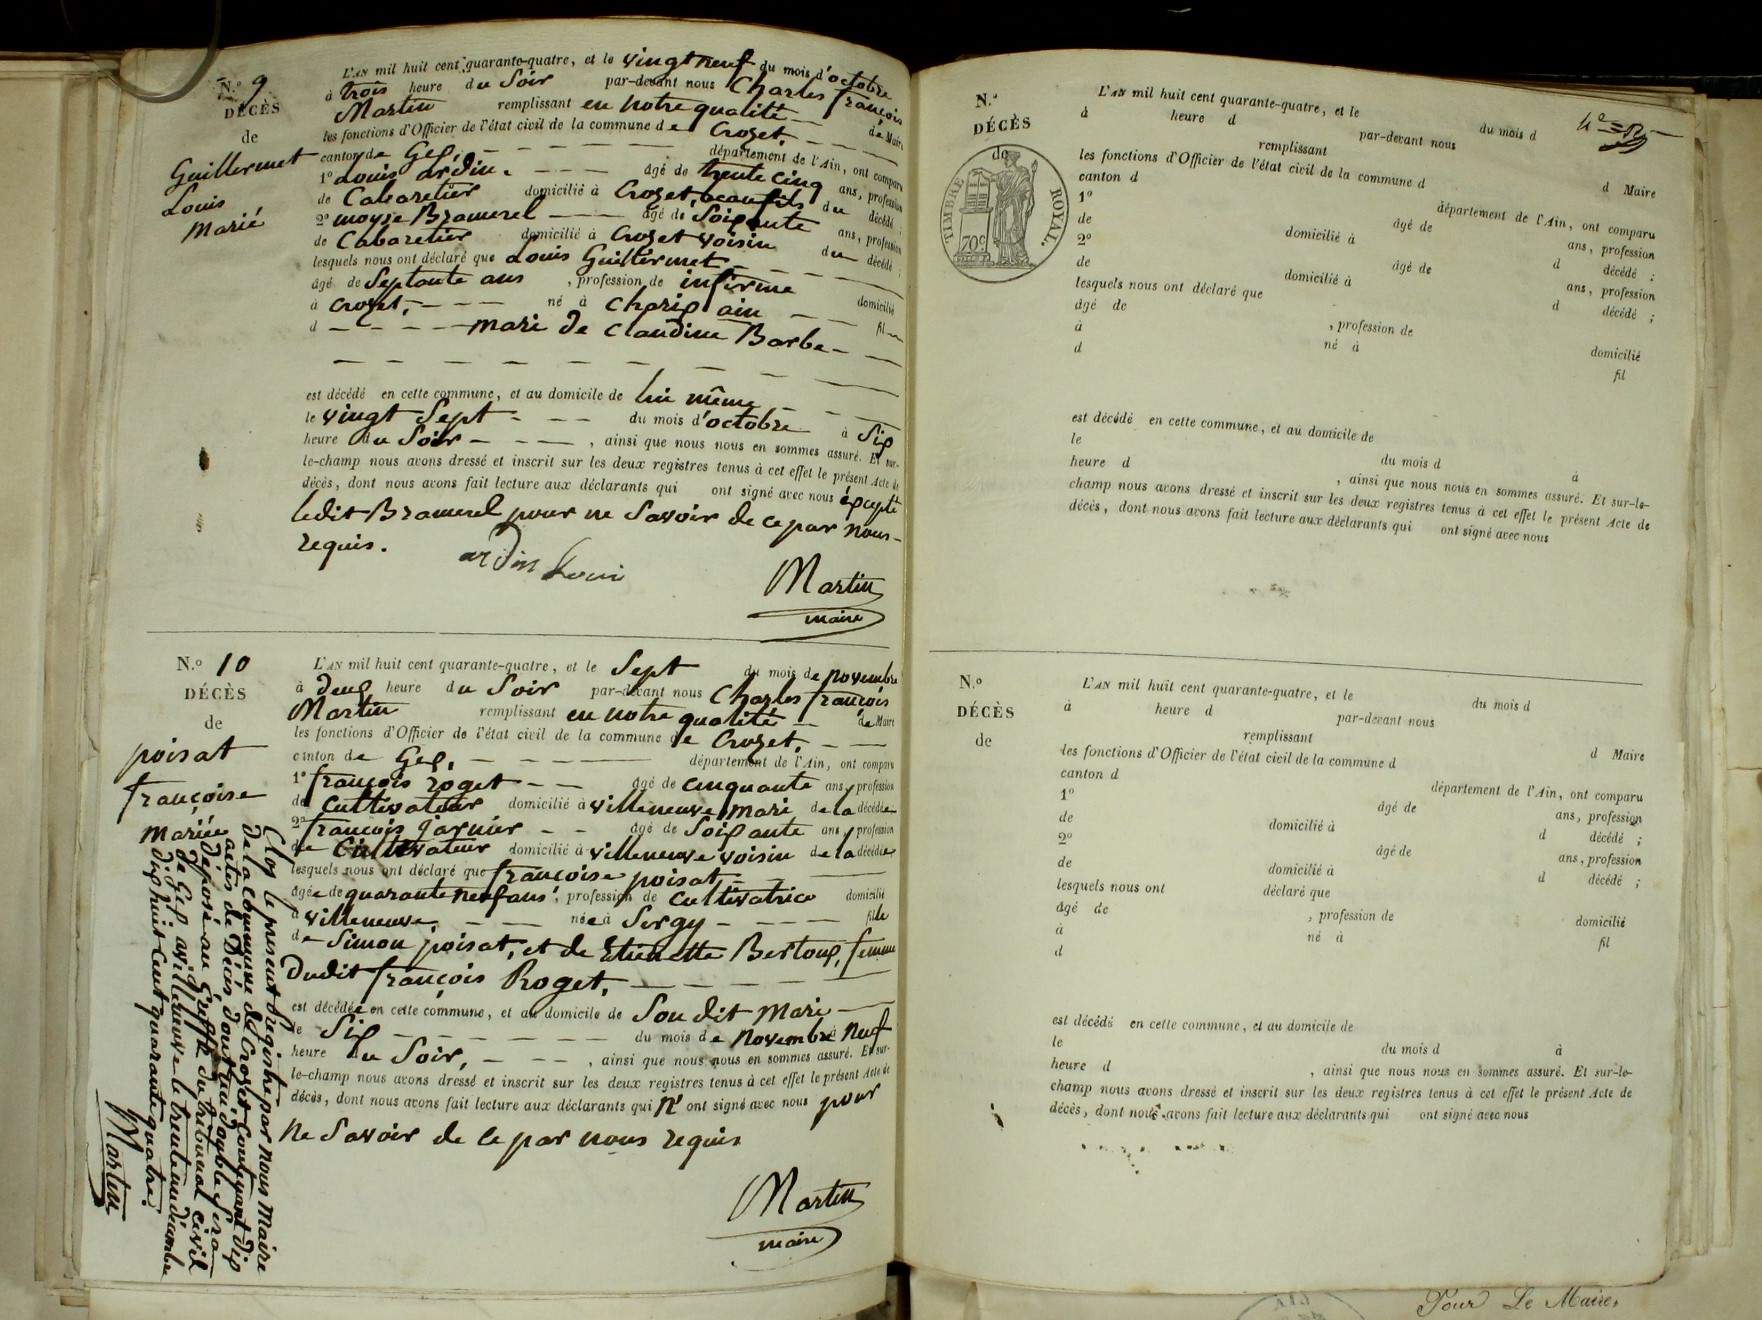 N.º 9
DÉCÈS
de
Guillermet
Louis
Marié
L'AN mil huit cent quarante-quatre, et le vingt neuf du mois d'octobre
à trois heure du Soir par-devant nous Charles françois
Martin remplissant en notre qualité de Maire
les fonctions d'Officier de l'état civil de la commune de Crozet
canton de Gex, département de l'Ain, ont comparu
1º Louis ardin, âgé de trente cinq ans, profession
de Cabaretier domicilié à Crozet, beaufils du décédé ;
2º moyse Bramerel âgé de Soixante ans, profession
de Cabaretier domicilié à Crozet voisin du décédé ;
lesquels nous ont déclaré que Louis Guillermet
âgé de Septante ans , profession de infirme domicilié
à Crozet, né à Chariz ain fil
d mari de Claudine Barbe
est décédé en cette commune, et au domicile de lui même
le vingt Sept du mois d'octobre à Six
heure du Soir , ainsi que nous nous en sommes assuré. Et sur-
le-champ nous avons dressé et inscrit sur les deux registres tenus à cet effet le présent Acte de
décès, dont nous avons fait lecture aux déclarants qui ont signé avec nous éxcepté
ledit Bramerel pour ne Savoir de ce par nous
requis.
ardin Loui
Martin
maire
N.º 10
DÉCÈS
de
poisat
françoise
Mariée
L'AN mil huit cent quarante-quatre, et le Sept du mois de Novembre
à deux heure du Soir par-devant nous Charles françois
Martin remplissant en notre qualité de Maire
les fonctions d'Officier de l'état civil de la commune de Crozet,
canton de Gex, département de l'Ain, ont comparu
1º françois roget âgé de cinquante ans, profession
de Cultivateur domicilié à villeneuve mari de la décédée
2º françois garnier âgé de Soixante ans, profession
de Cultivateur domicilié à villeneuve voisin de la décédée
lesquels nous ont déclaré que françoise poisat,
âgée de quarante neuf ans, profession de Cultivatrice domicilié
à villeneuve, née à Sergy fille
de Simon poisat, et de Etienette Bertoux, femme
dudit françois Roget,
est décédée en cette commune, et au domicile de Son dit Mari
le Six du mois de Novembre à Neuf
heure du Soir, , ainsi que nous nous en sommes assuré. Et sur-
le-champ nous avons dressé et inscrit sur les deux registres tenus à cet effet le présent Acte de
décès, dont nous avons fait lecture aux déclarants qui N' ont signé avec nous pour
Ne Savoir de ce par nous requis
Martin
maire
Clos le present Registre par nous Maire
de la Commune de Crozet Contenant dix
actes de Décès dont un double Sera
déposé au Greffe du tribunal civil
de Gex. a villeneuve le trente un décembre
dix huit Cent quarante quatre.
Martin
N.º
DÉCÈS
de
TIMBRE ROYAL.
70 c
L'AN mil huit cent quarante-quatre, et le du mois d
à heure d par-devant nous
remplissant d Maire
les fonctions d'Officier de l'état civil de la commune d
canton d département de l'Ain, ont comparu
1º âgé de ans, profession
de domicilié à d décédé ;
2º âgé de ans, profession
de domicilié à d décédé ;
lesquels nous ont déclaré que
âgé de , profession de domicilié
à né à fil
d
est décédé en cette commune, et au domicile de
le du mois d à
heure d , ainsi que nous nous en sommes assuré. Et sur-le-
champ nous avons dressé et inscrit sur les deux registres tenus à cet effet le présent Acte de
décès, dont nous avons fait lecture aux déclarants qui ont signé avec nous
N.º
DÉCÈS
de
L'AN mil huit cent quarante-quatre, et le du mois d
à heure d par-devant nous
remplissant d Maire
les fonctions d'Officier de l'état civil de la commune d
canton d département de l'Ain, ont comparu
1º âgé de ans, profession
de domicilié à d décédé ;
2º âgé de ans, profession
de domicilié à d décédé ;
lesquels nous ont déclaré que
âgé de , profession de domicilié
à né à fil
d
est décédé en cette commune, et au domicile de
le du mois d à
heure d , ainsi que nous nous en sommes assuré. Et sur-le-
champ nous avons dressé et inscrit sur les deux registres tenus à cet effet le présent Acte de
décès, dont nous avons fait lecture aux déclarants qui ont signé avec nous
Pour Le Maire,